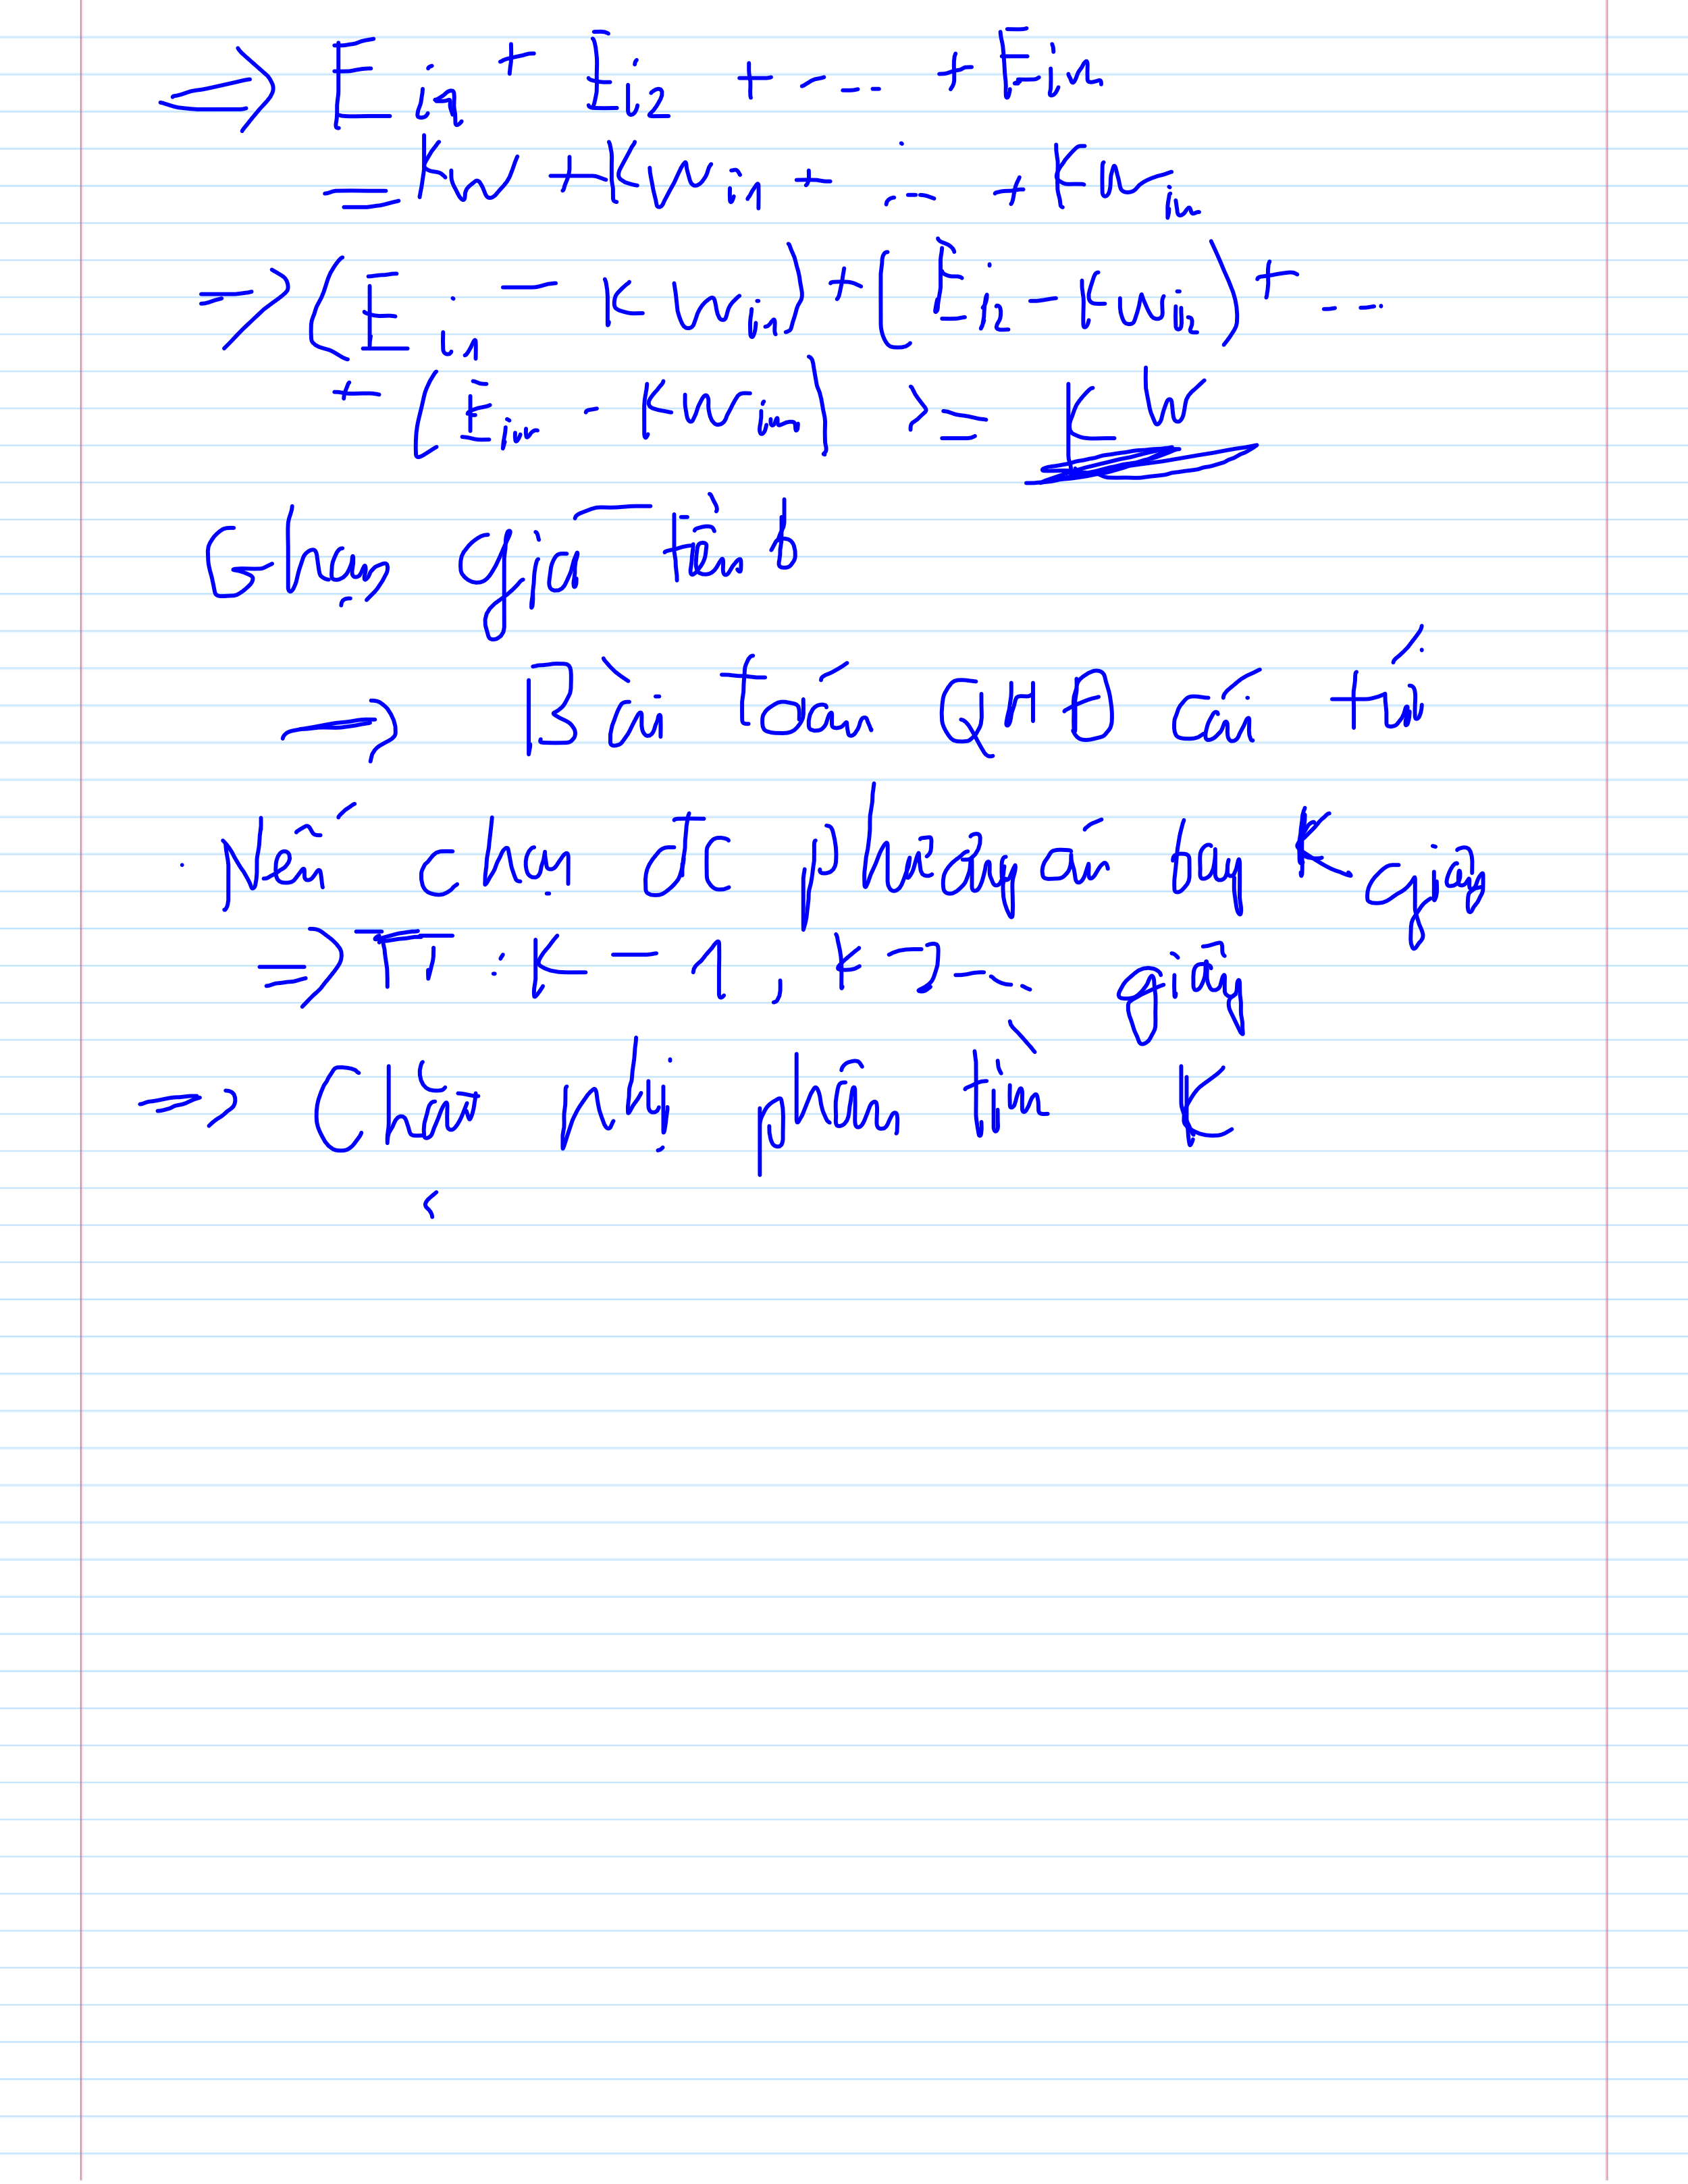 ⇒ E_i1 + E_i2 + ... + E_in
= Kw + Kw_i1 + ... + Kw_in
⇒ (E_i1 - Kw_i1) + (E_i2 - Kw_i2) + ...
+ (E_in - Kw_in) >= KW
giá
⇒ Bài toán QHĐ cái túi
Nếu chọn đc phương án bay K giây
⇒ TT : K-1, K-2... giây
⇒ Chặt nhị phân tìm K